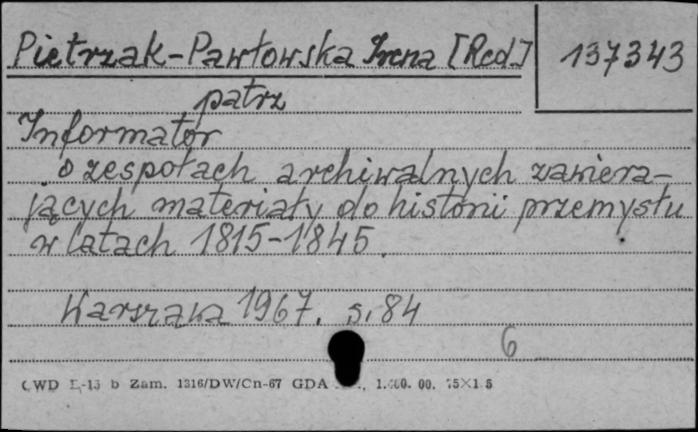 Pietrzak-Pawłowska Irena [Red.] 137343
patrz
Informator
o zespołach archiwalnych zawiera-
jących materiały do historii przemysłu
w latach 1815-1845.
Warszawa 1967. s. 84
6
CWD E-13 b Zam. 1316/DW/Cn-67 GDA